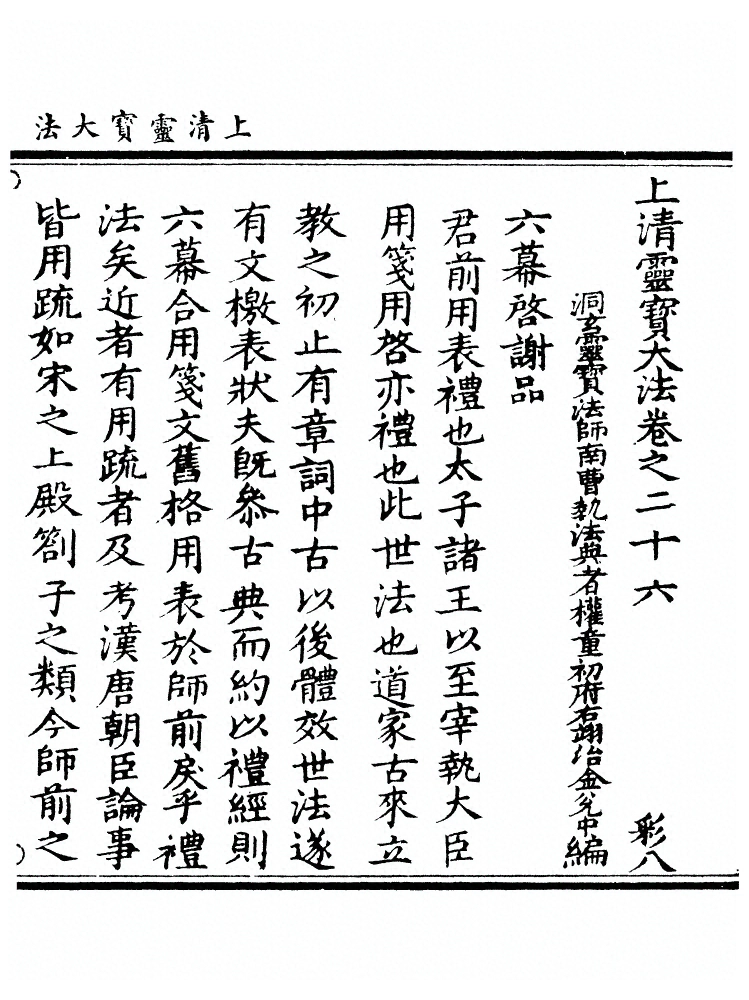 上清靈寶大法
上清靈寶大法卷之二十六 彩八
洞玄靈寶法師南曹執法典者權童初府右翊治金允中編
六幕啓謝品
君前用表禮也太子諸王以至宰執大臣
用箋用啓亦禮也此世法也道家古來立
教之初止有章詞中古以後體效世法遂
有文檄表狀夫旣叅古典而約以禮經則
六幕合用箋文舊格用表於師前戾乎禮
法矣近者有用疏者及考漢唐朝臣論事
皆用疏如宋之上殿劄子之類今師前之